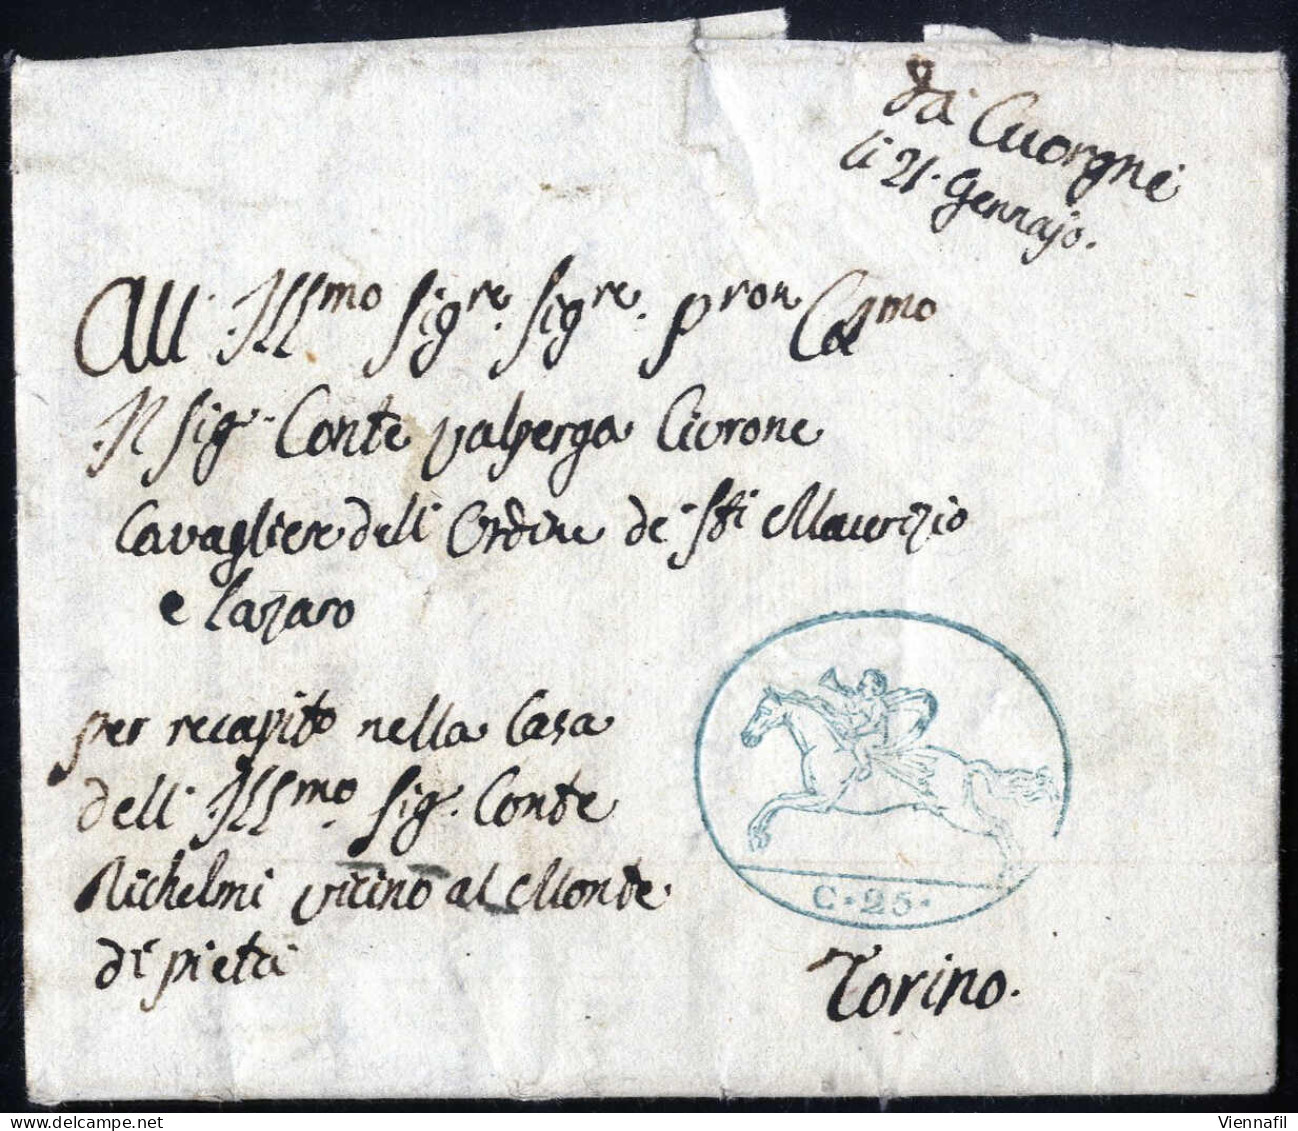 da Cuorgnè
li 21. Gennajo.
All' Ill^mo Sig^re. Sig^re. P^ron Col^mo
Il Sig. Conte Valperga Civrone
Cavagliere dell' Ordine de' Sti Maurizio
e Lazaro
per recapito nella Casa
dell' Ill^mo. Sig. Conte
Richelmi vicino al Monte
di pietà
C. 25.
Torino.
Viennafil